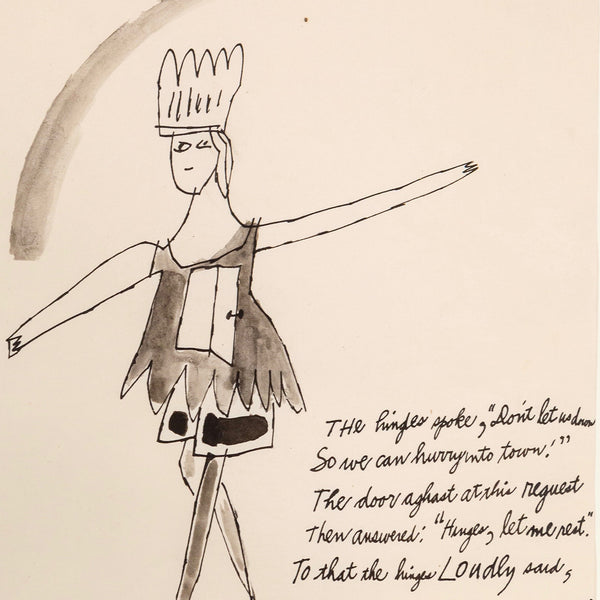 THe hinges spoke, "Don't let us down
So we can hurry into town!"
The door aghast at this request
Then answered: "Hinges, let me rest."
To that the hinges Loudly said,